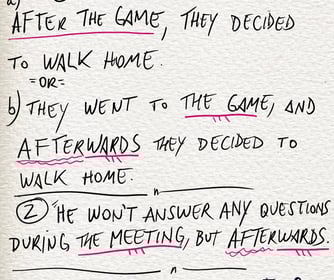 a)
AFTER THE GAME, THEY DECIDED
TO WALK HOME.
=OR=
b) THEY WENT TO THE GAME, AND
AFTERWARDS THEY DECIDED TO
WALK HOME.
n
② HE WON'T ANSWER ANY QUESTIONS
DURING THE MEETING, BUT AFTERWARDS.
n